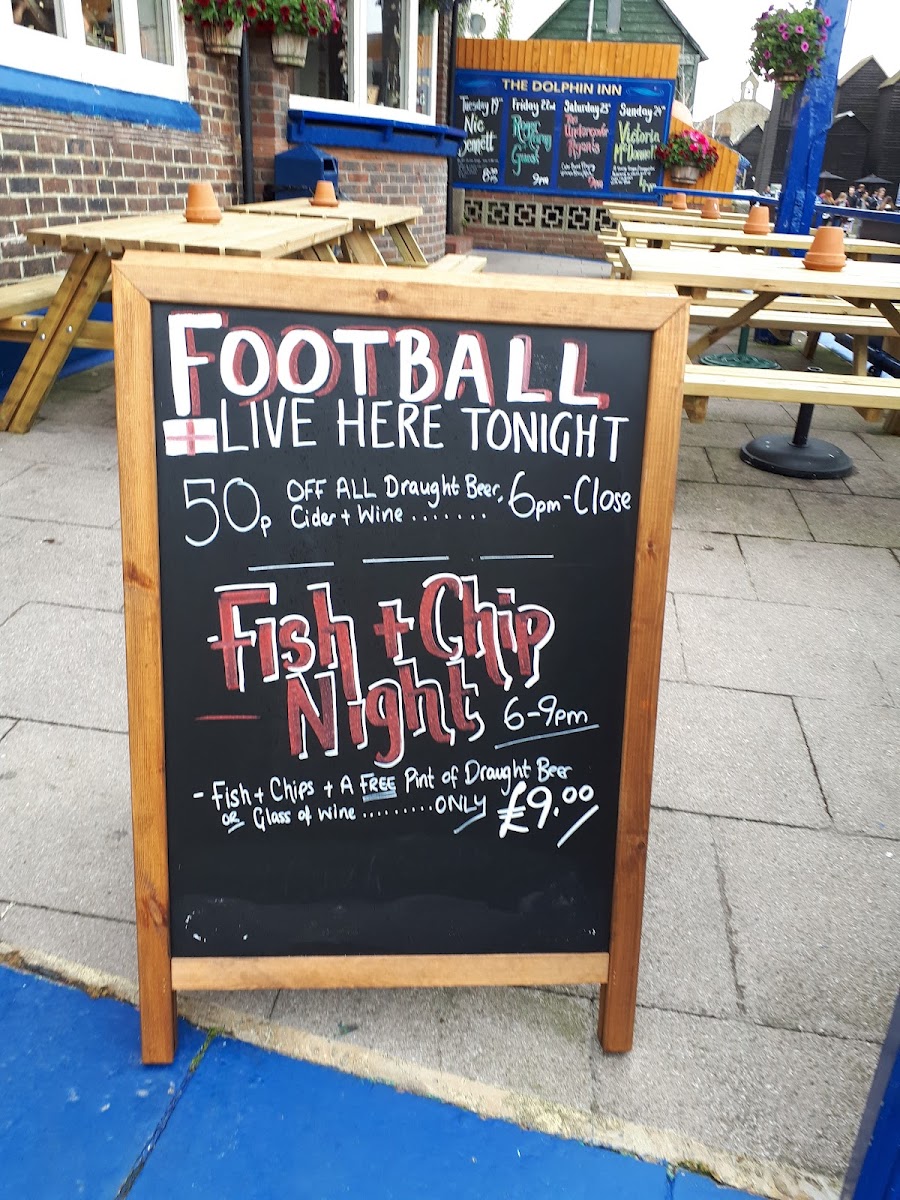 THE DOLPHIN INN
Tuesday 19th
Nic
Bennett
8.30
Friday 22nd
Roger
Guest
9pm
Saturday 23rd
The
Undercover
Ryan's
9pm
Sunday 24th
Victoria
McDonnell
4pm
FOOTBALL
LIVE HERE TONIGHT
50p OFF ALL Draught Beer, 6pm-Close
Cider + Wine .......
Fish + Chip
Night 6-9pm
- Fish + Chips + A FREE Pint of Draught Beer
OR Glass of wine ......... ONLY £9.00